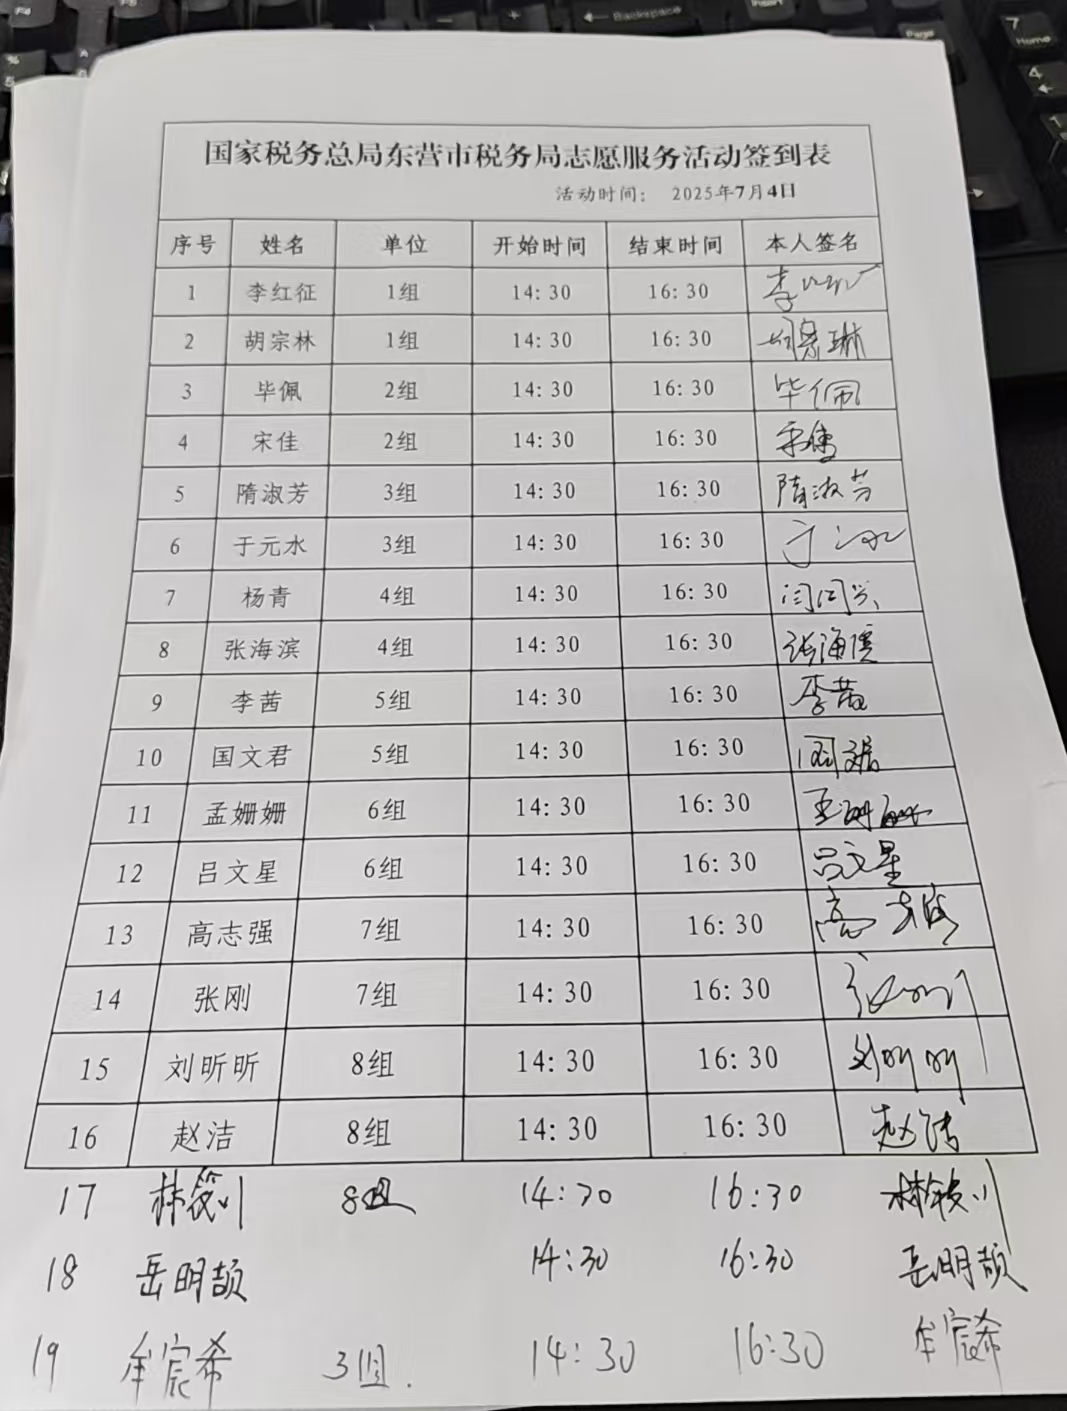 国家税务总局东营市税务局志愿服务活动签到表
活动时间： 2025年7月4日
序号 姓名 单位 开始时间 结束时间 本人签名
1 李红征 1组 14:30 16:30 李
2 胡宗林 1组 14:30 16:30 胡宗琳
3 毕佩 2组 14:30 16:30 毕佩
4 宋佳 2组 14:30 16:30 宋佳
5 隋淑芳 3组 14:30 16:30 隋淑芳
6 于元水 3组 14:30 16:30 于
7 杨青 4组 14:30 16:30
8 张海滨 4组 14:30 16:30 张海滨
9 李茜 5组 14:30 16:30 李茜
10 国文君 5组 14:30 16:30 国文君
11 孟姗姗 6组 14:30 16:30
12 吕文星 6组 14:30 16:30 吕文星
13 高志强 7组 14:30 16:30 高志强
14 张刚 7组 14:30 16:30 张刚
15 刘昕昕 8组 14:30 16:30 刘昕昕
16 赵洁 8组 14:30 16:30 赵洁
17 8组 14:30 16:30
18 岳明颉 14:30 16:30 岳明颉
19 牟宸希 3组. 14:30 16:30 牟宸希